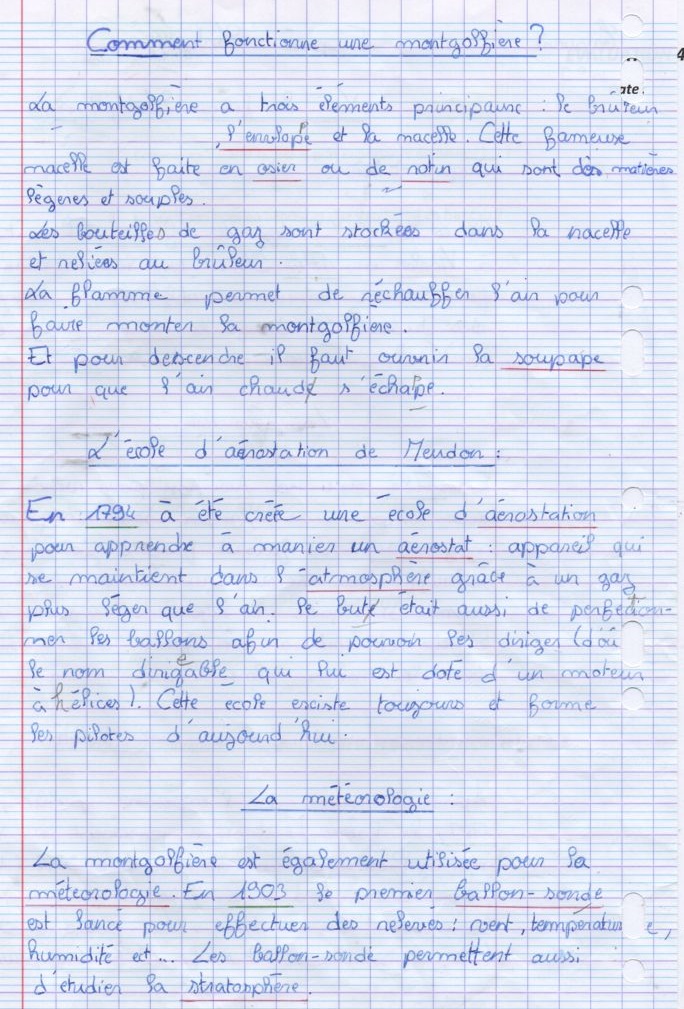 Comment fonctionne une montgolfière ?
4
ate.
La montgolfière a trois éléments principaux : le brûleur
, l'enveloppe et la nacelle. Cette fameuse
nacelle est faite en osier ou de rotin qui sont des matières
légères et souples.
Les bouteilles de gaz sont stockées dans la nacelle
et reliées au brûleur.
La flamme permet de réchauffer l'air pour
faire monter la montgolfière.
Et pour descendre il faut ouvrir la soupape
pour que l'air chaud s'échappe.
L'école d'aérostation de Meudon :
En 1794 à été créée une école d'aérostation
pour apprendre à manier un aérostat : appareil qui
se maintient dans l'atmosphère grâce à un gaz
plus léger que l'air. Le but était aussi de perfection-
ner les ballons afin de pouvoir les diriger (d'où
le nom dirigeable qui lui est doté d'un moteur
à hélices). Cette école esciste toujours et forme
les pilotes d'aujourd'hui.
La météorologie :
La montgolfière est également utilisée pour la
météorologie. En 1903 le premier ballon-sonde
est lancé pour effectuer des relevés : vent, température,
humidité et... Les ballon-sonde permettent aussi
d'étudier la stratosphère.